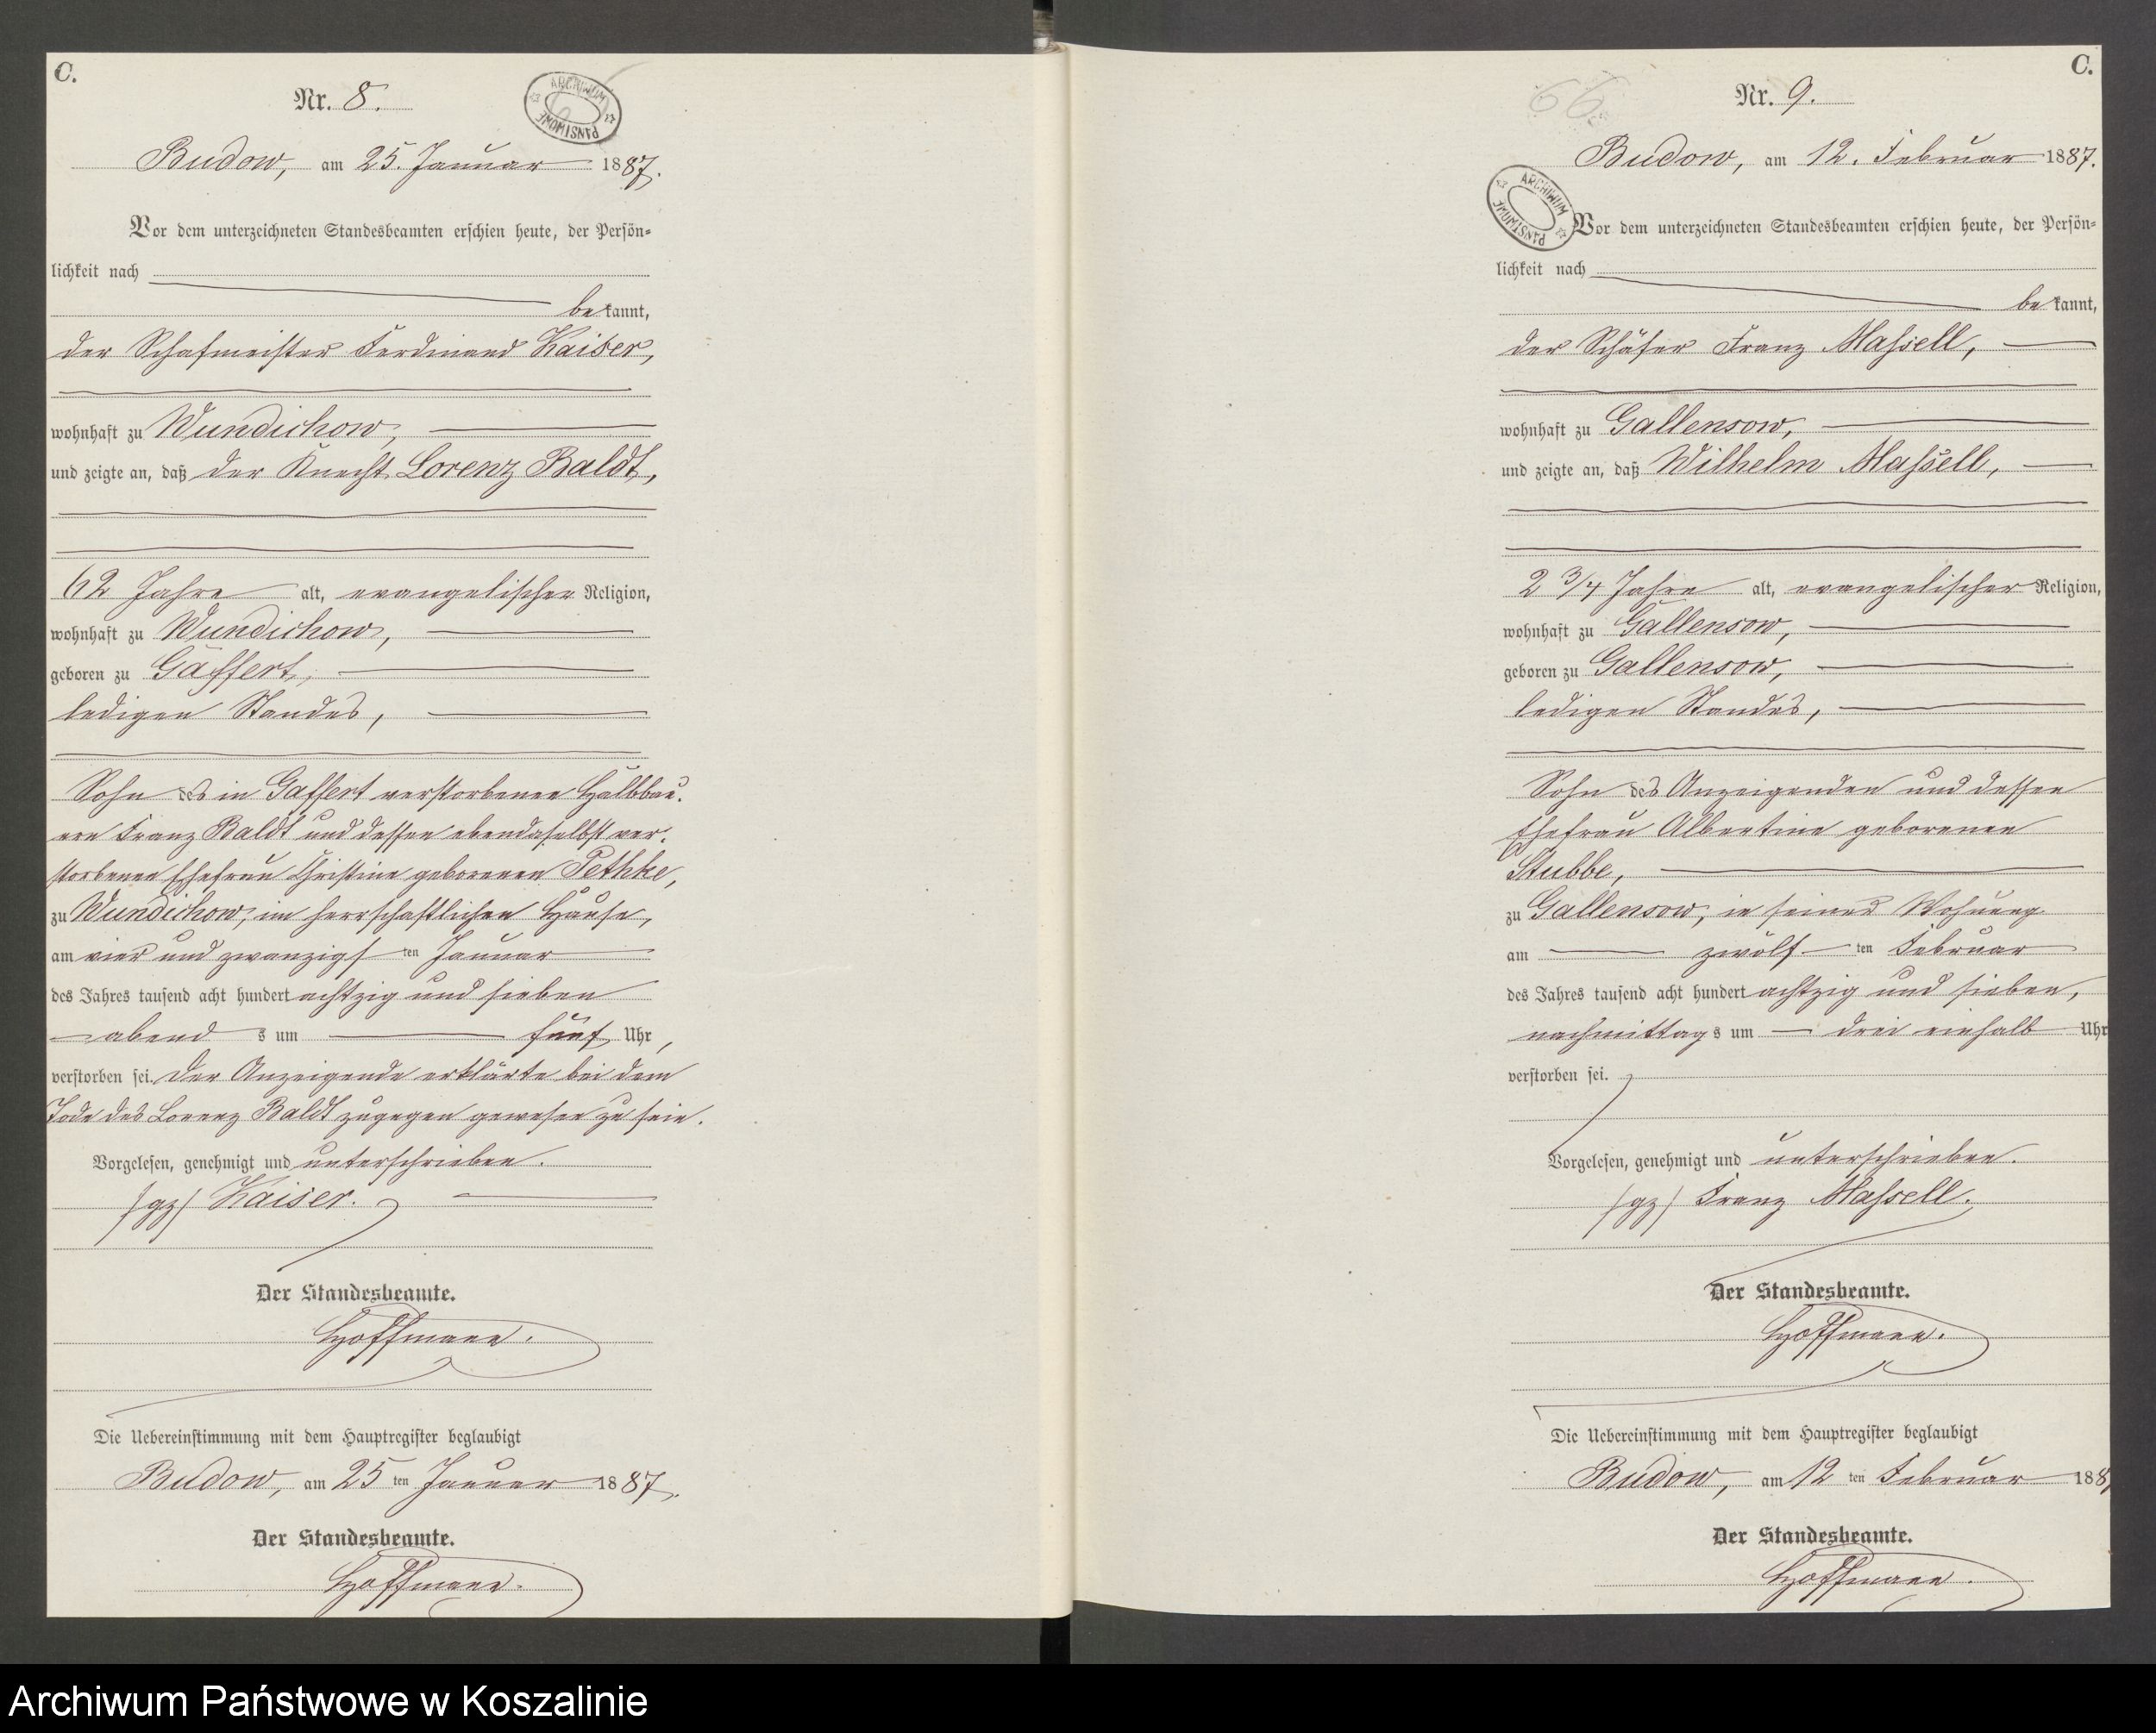 C.
Nr. 8.
ARCHIWUM PAŃSTWOWE
Budow, am 25. Januar 1887.
Vor dem unterzeichneten Standesbeamten erschien heute, der Persön=
lichkeit nach
bekannt,
der Schafmeister Ferdinand Kaiser,
wohnhaft zu Wundichow,
und zeigte an, daß der Knecht Lorenz Baldt,
62 Jahre alt, evangelischer Religion,
wohnhaft zu Wundichow,
geboren zu Gaffert,
ledigen Standes,
Sohn des in Gaffert verstorbenen Halbbau-
ern Franz Baldt und dessen ebendaselbst ver-
storbenen Ehefrau Christine geborenen Pethke,
zu Wundichow, im herrschaftlichen Hause,
am vier und zwanzigsten Januar
des Jahres tausend acht hundert achtzig und sieben
abends um fünf Uhr,
verstorben sei. Der Anzeigende erklärte bei dem
Tode des Lorenz Baldt zugegen gewesen zu sein.
Vorgelesen, genehmigt und unterschrieben.
/gz/ Kaiser.
Der Standesbeamte.
Hoffmann.
Die Uebereinstimmung mit dem Hauptregister beglaubigt
Budow, am 25 ten Januar 1887.
Der Standesbeamte.
Hoffmann.
C.
66.
Nr. 9.
Budow, am 12. Februar 1887.
ARCHIWUM PAŃSTWOWE
Vor dem unterzeichneten Standesbeamten erschien heute, der Persön=
lichkeit nach
bekannt,
der Schäfer Franz Massell,
wohnhaft zu Gallensow,
und zeigte an, daß Wilhelm Massell,
2 3/4 Jahre alt, evangelischer Religion,
wohnhaft zu Gallensow,
geboren zu Gallensow,
ledigen Standes,
Sohn des Anzeigenden und dessen
Ehefrau Albertine geborenen
Stubbe,
zu Gallensow, in seiner Wohnung
am zwölften Februar
des Jahres tausend acht hundert achtzig und sieben,
nachmittags um drei einhalb Uhr
verstorben sei.
Vorgelesen, genehmigt und unterschrieben.
/gz/ Franz Massell.
Der Standesbeamte.
Hoffmann.
Die Uebereinstimmung mit dem Hauptregister beglaubigt
Budow, am 12 ten Februar 1887
Der Standesbeamte.
Hoffmann.
Archiwum Państwowe w Koszalinie